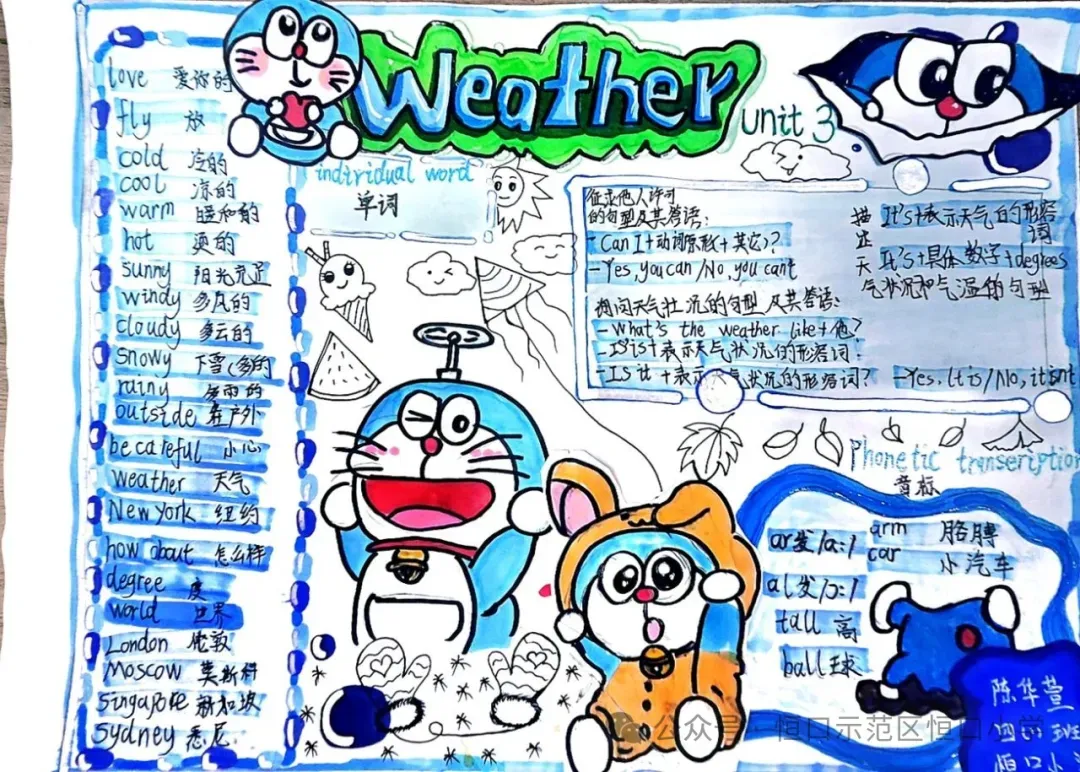 Weather
unit 3
love 爱你的
fly 放
cold 冷的
cool 凉的
warm 暖和的
hot 热的
sunny 阳光充足
windy 多风的
cloudy 多云的
snowy 下雪(多的
rainy
outside 在户外
be careful 小心
weather 天气
New York 纽约
how about 怎么样
degree 度
world 世界
London 伦敦
Moscow 莫斯科
Singapore 新加坡
Sydney 悉尼
individual word
单词
征求他人许可
的句型及其答语:
-Can I+动词原形+其它)?
-Yes,you can/No,you cant
询问天气壮况的句型及其答语:
-What's the weather like+他?
-It'sist表示天气状况的形容词:
-Is it +表示天气状况的形容词? -Yes. It is/No, it isnt
描述天气状况和气温的句型
It's+表示天气的形容词
It's+具体数字+degrees
Phonetic transcription
音标
ar发/a:/ arm 胳膊
car 小汽车
al发/ɔ:/
tall 高
ball球
陈华萱
班
恒口小
公众号·恒口示范区恒口小学